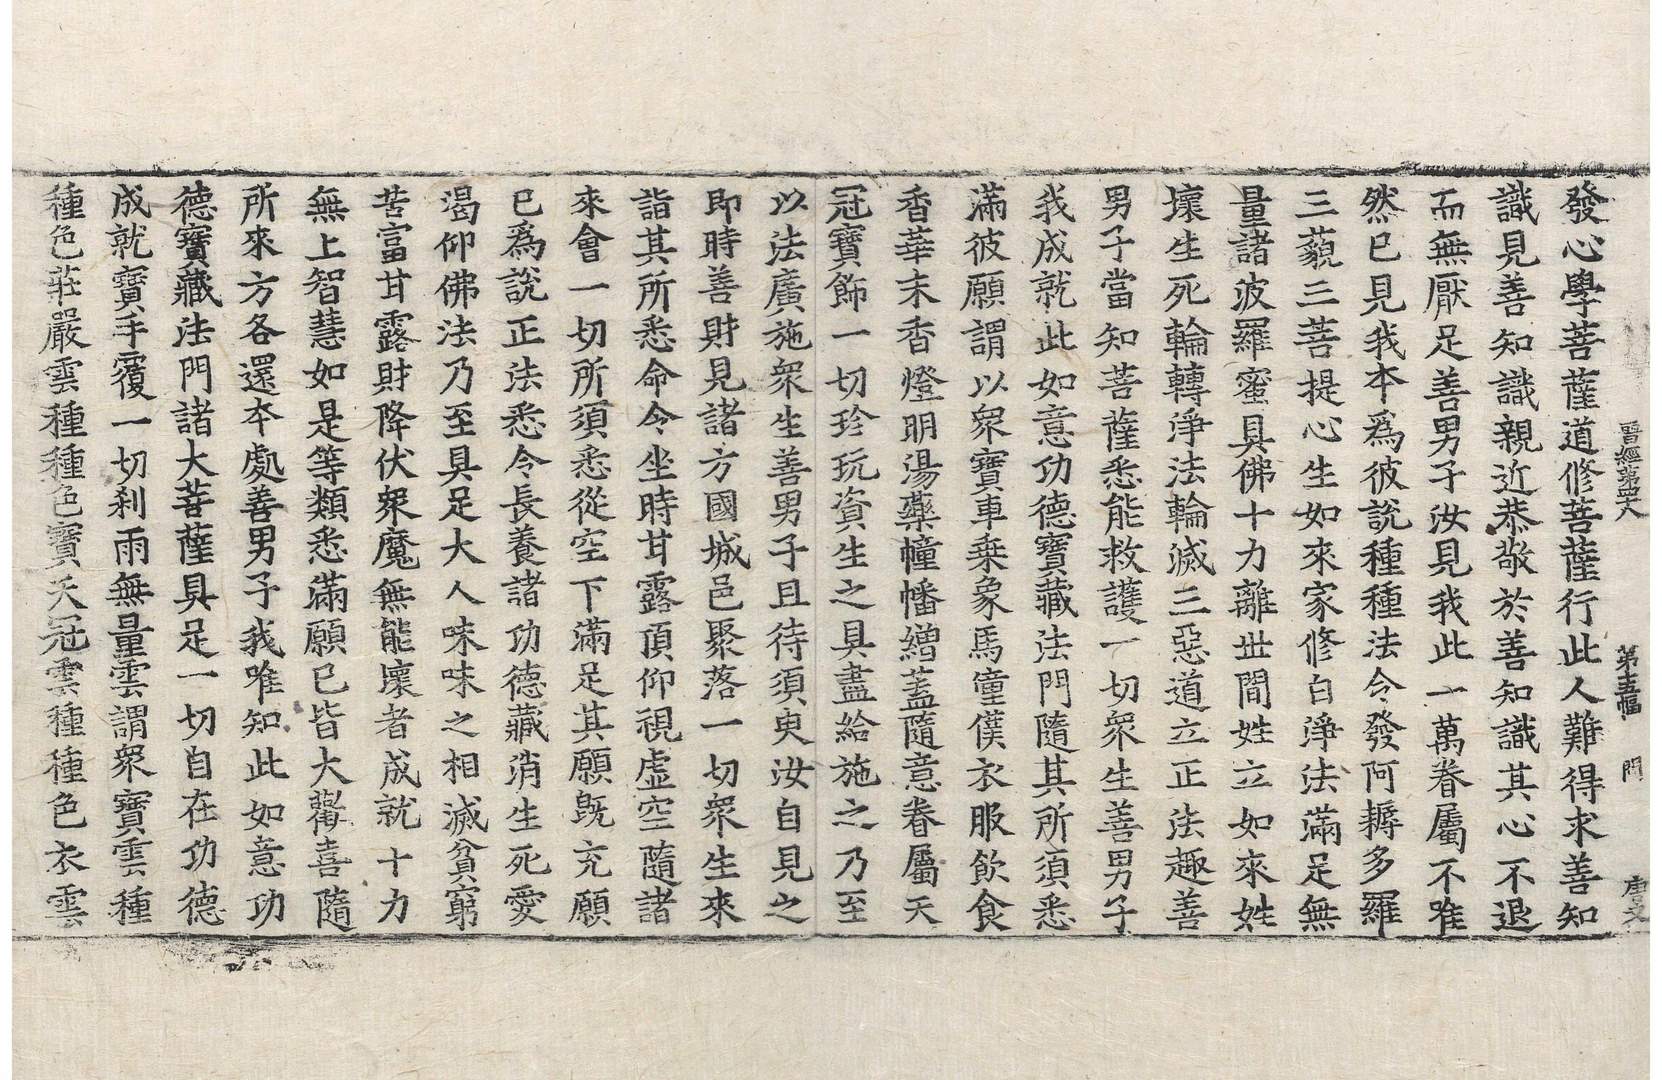 晉經第四十八　第十五幅　門　唐文
發心學菩薩道修菩薩行此人難得求善知
識見善知識親近恭敬於善知識其心不退
而無厭足善男子汝見我此一萬眷屬不唯
然已見我本爲彼說種種法令發阿耨多羅
三藐三菩提心生如來家修白淨法滿足無
量諸波羅蜜具佛十力離世間姓立如來姓
壞生死輪轉淨法輪滅三惡道立正法趣善
男子當知菩薩悉能救護一切衆生善男子
我成就此如意功德寶藏法門隨其所須悉
滿彼願謂以衆寶車乗象馬僮僕衣服飮食
香華末香燈明湯藥幢幡繒蓋隨意眷屬天
冠寶飾一切珍玩資生之具盡給施之乃至
以法廣施衆生善男子且待須臾汝自見之
即時善財見諸方國城邑聚落一切衆生來
詣其所悉命令坐時甘露頂仰視虛空隨諸
來會一切所須悉從空下滿足其願旣充願
已爲說正法悉令長養諸功德藏消生死愛
渴仰佛法乃至具足大人味味之相滅貧窮
苦富甘露財降伏衆魔無能壞者成就十力
無上智慧如是等類悉滿願已皆大歡喜隨
所來方各還本處善男子我唯知此如意功
德寶藏法門諸大菩薩具足一切自在功德
成就寶手覆一切刹雨無量雲謂衆寶雲種
種色莊嚴雲種種色寶天冠雲種種色衣雲